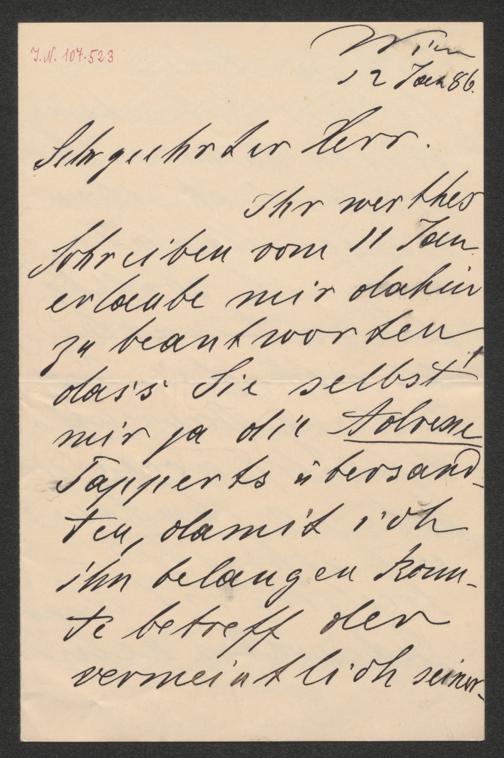 I.N. 107.523
Wien
12 Jan 86.
Sehrgeehrter Herr.
Ihr werthes
Schreiben vom 11 Jan
erlaube mir dahin
zu beantworten,
dass Sie selbst
mir ja die Adresse
Tapperts übersand-
ten, damit ich
ihn belangen konn-
te betreff der
vermeintlich seiner-